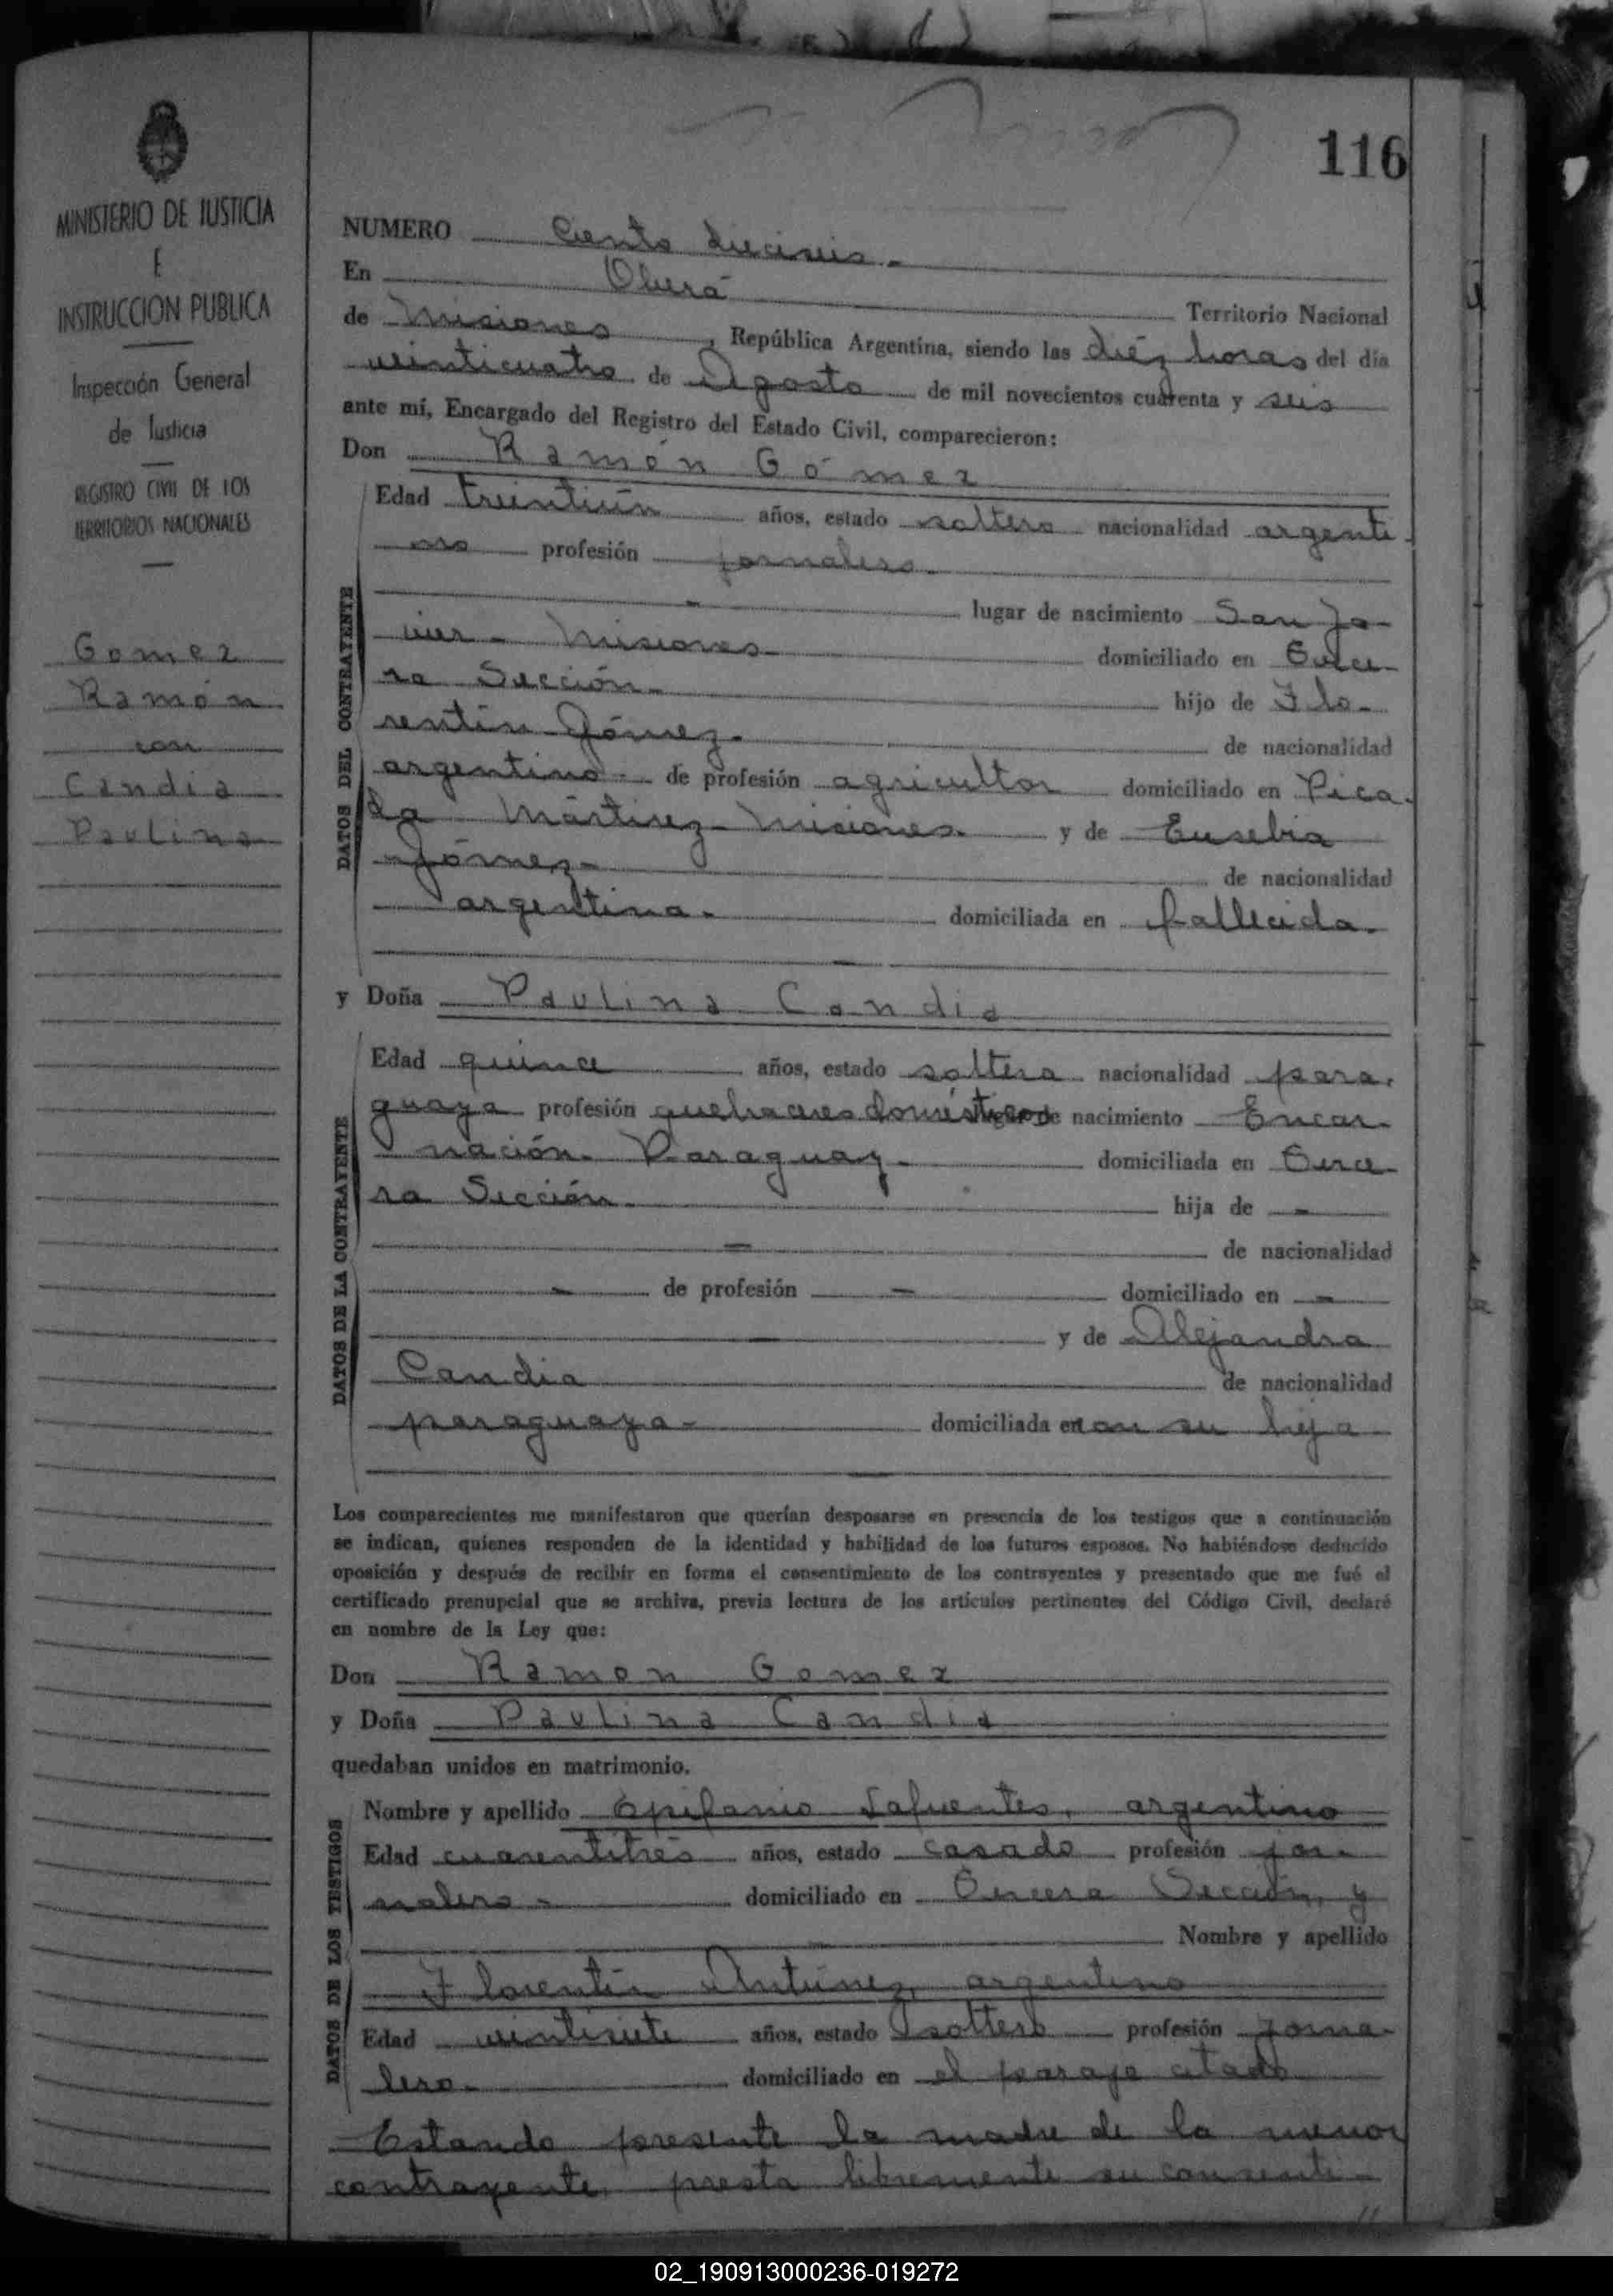 116
MINISTERIO DE JUSTICIA
E
INSTRUCCION PUBLICA
Inspección General
de Justicia
REGISTRO CIVIL DE LOS
TERRITORIOS NACIONALES
Gomez
Ramón
con
Candia
Paulina
NUMERO Ciento dieciseis.-
En Oberá
Territorio Nacional
de Misiones, República Argentina, siendo las diéz horas del día
veinticuatro de Agosto de mil novecientos cuarenta y seis
ante mí, Encargado del Registro del Estado Civil, comparecieron:
Don Ramón Gómez
DATOS DEL CONTRAYENTE
Edad treintiún años, estado soltero nacionalidad argenti-
no profesión jornalero.
- lugar de nacimiento San Ja-
vier - Misiones- domiciliado en Terce-
ra Sección- hijo de Flo-
rentin Gómez- de nacionalidad
argentino- de profesión agricultor domiciliado en Pica-
da Mártirez- Misiones. y de Eusebia
Gómez- de nacionalidad
argentina.- domiciliada en fallecida.
-
y Doña Paulina Candia
DATOS DE LA CONTRAYENTE
Edad quince años, estado soltera nacionalidad para-
guaya profesión quehaceres domésticos lugar de nacimiento Encar-
nación- Paraguay- domiciliada en Terce-
ra Sección- hija de -
- de nacionalidad
- de profesión - domiciliado en -
- y de Alejandra
Candia de nacionalidad
paraguaya- domiciliada en con su hija
-
Los comparecientes me manifestaron que querían desposarse en presencia de los testigos que a continuación
se indican, quienes responden de la identidad y habilidad de los futuros esposos. No habiéndose deducido
oposición y después de recibir en forma el consentimiento de los contrayentes y presentado que me fué el
certificado prenupcial que se archiva, previa lectura de los artículos pertinentes del Código Civil, declaré
en nombre de la Ley que:
Don Ramon Gomez
y Doña Paulina Candia
quedaban unidos en matrimonio.
DATOS DE LOS TESTIGOS
Nombre y apellido Epifanio Lafuentes, argentino
Edad cuarentitrés años, estado casado profesión jor-
nalero- domiciliado en Tercera Sección, y
- Nombre y apellido
Florentín Antúnez, argentino
Edad veintisiete años, estado soltero profesión jorna-
lero- domiciliado en el paraje citado
Estando presente la madre de la menor
contrayente, presta libremente su consenti-
//
02_190913000236-019272